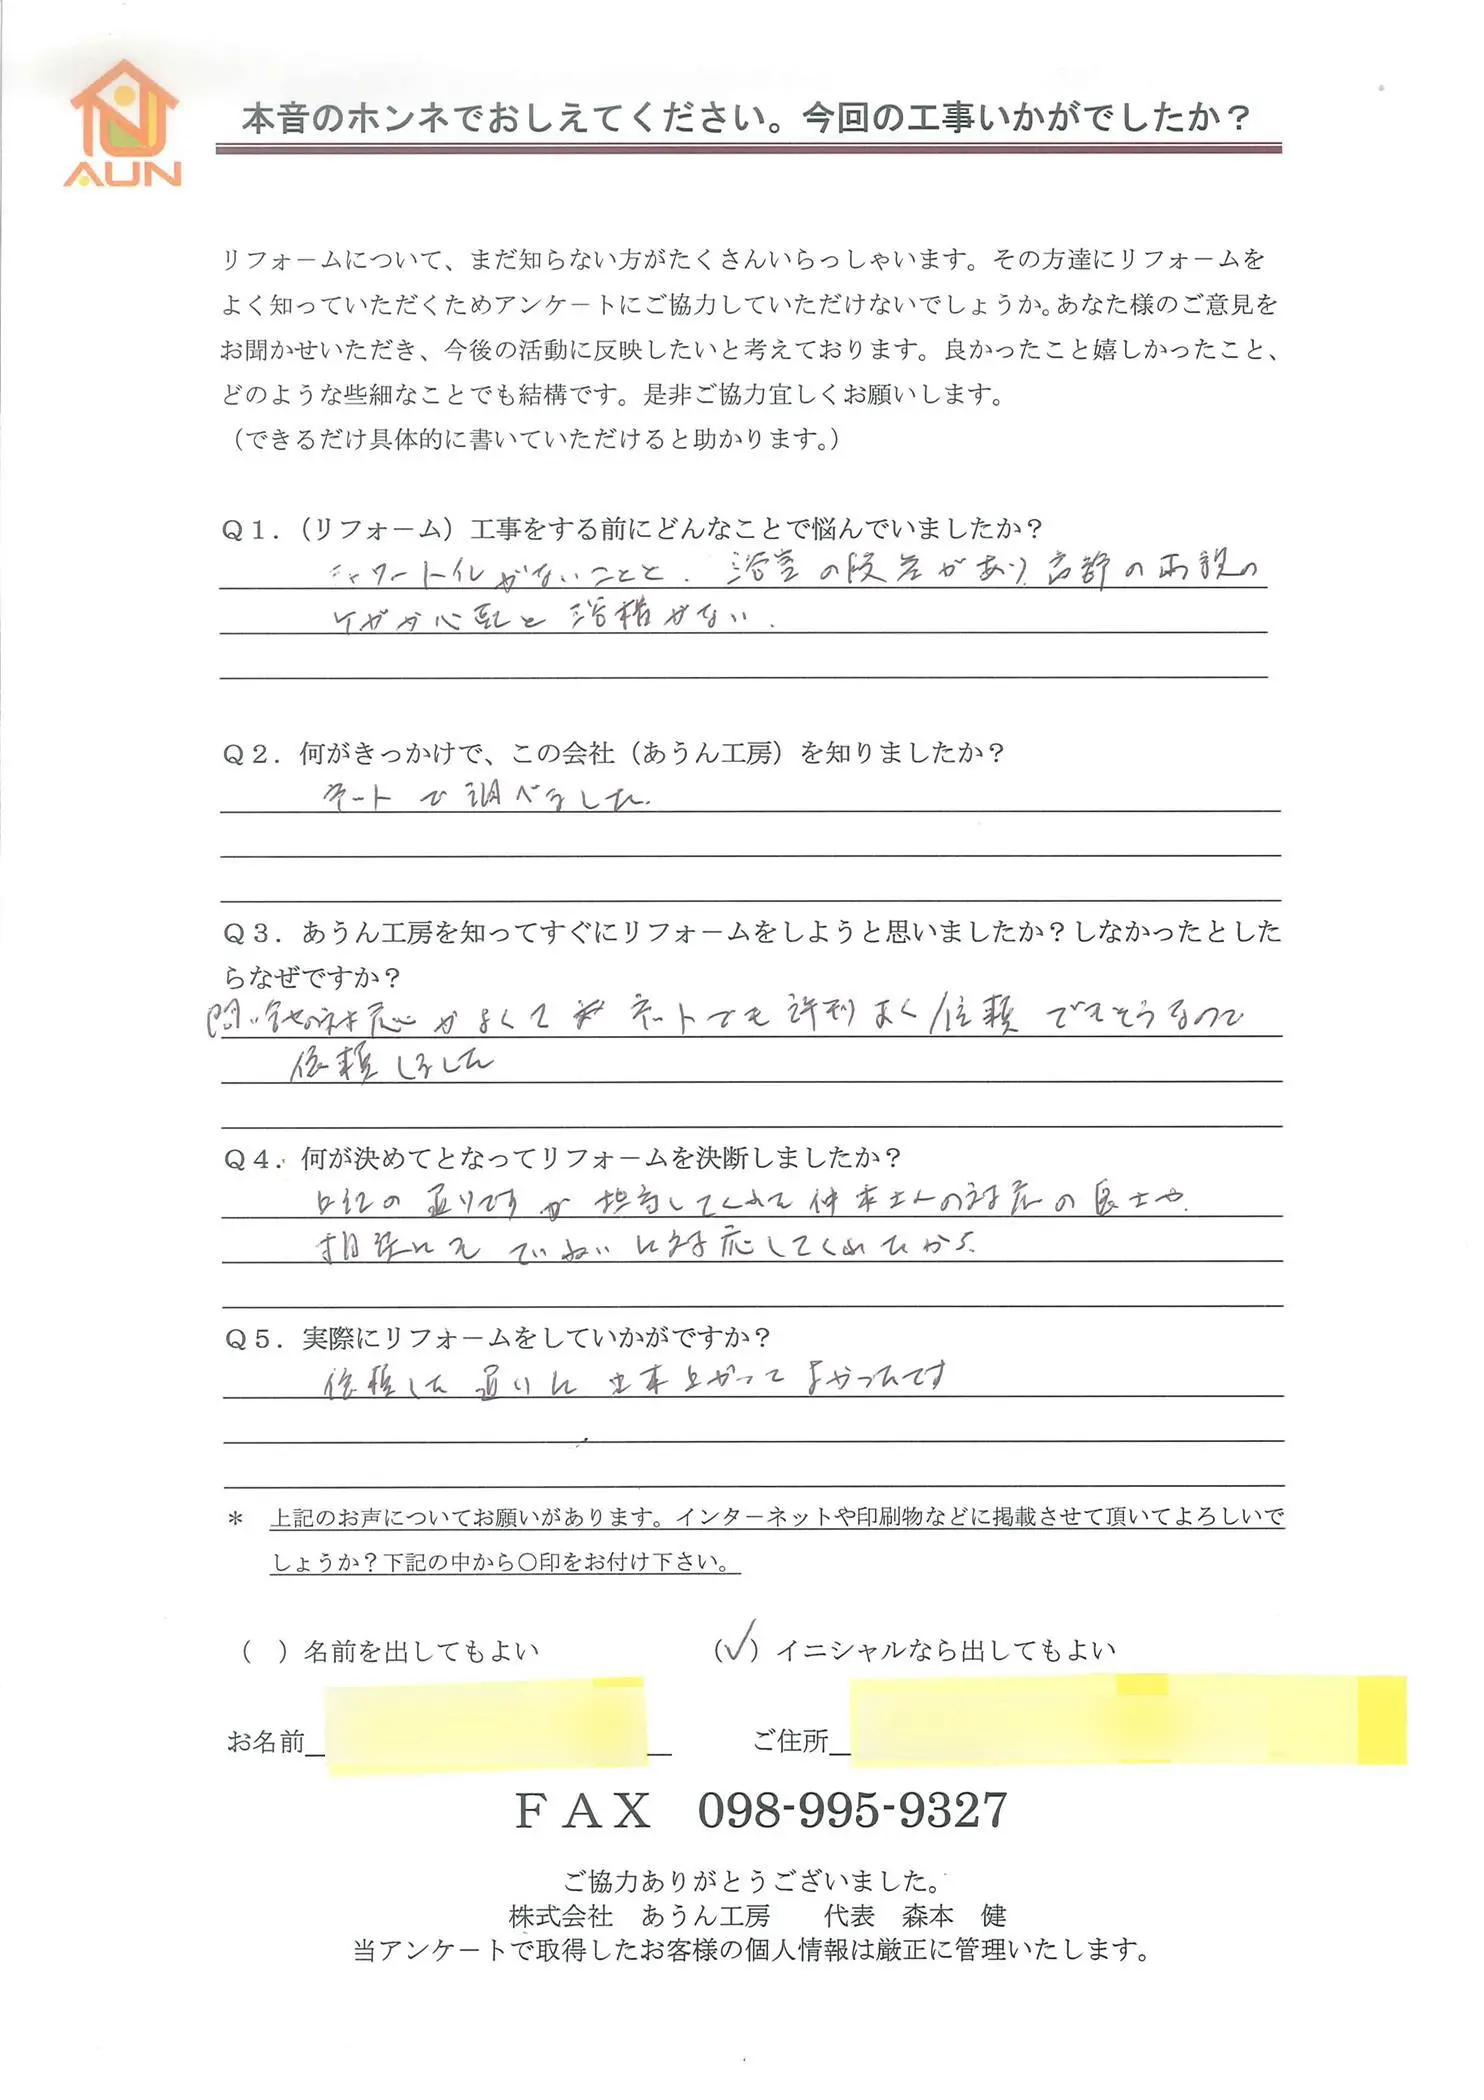 AUN
本音のホンネでおしえてください。今回の工事いかがでしたか？
リフォームについて、まだ知らない方がたくさんいらっしゃいます。その方達にリフォームを
よく知っていただくためアンケートにご協力していただけないでしょうか。あなた様のご意見を
お聞かせいただき、今後の活動に反映したいと考えております。良かったこと嬉しかったこと、
どのような些細なことでも結構です。是非ご協力宜しくお願いします。
（できるだけ具体的に書いていただけると助かります。）
Ｑ１．（リフォーム）工事をする前にどんなことで悩んでいましたか？
シャワートイレがないことと、浴室の段差があり高齢の両親の
ケガが心配と浴槽がない、
Ｑ２．何がきっかけで、この会社（あうん工房）を知りましたか？
ネットで調べました。
Ｑ３．あうん工房を知ってすぐにリフォームをしようと思いましたか？しなかったとした
らなぜですか？
問い合せの対応がよくて ネットでも評判よく信頼できそうなので
依頼しました
Ｑ４．何が決めてとなってリフォームを決断しましたか？
上記の通りですが担当してくれた仲本さんの対応の良さや、
相談にもていねいに対応してくれたから、
Ｑ５．実際にリフォームをしていかがですか？
依頼した通りに出来上がってよかったです
＊　上記のお声についてお願いがあります。インターネットや印刷物などに掲載させて頂いてよろしいで
しょうか？下記の中から○印をお付け下さい。
（　）名前を出してもよい　（✓）イニシャルなら出してもよい
お名前　ご住所
ＦＡＸ　098-995-9327
ご協力ありがとうございました。
株式会社　あうん工房　代表　森本　健
当アンケートで取得したお客様の個人情報は厳正に管理いたします。